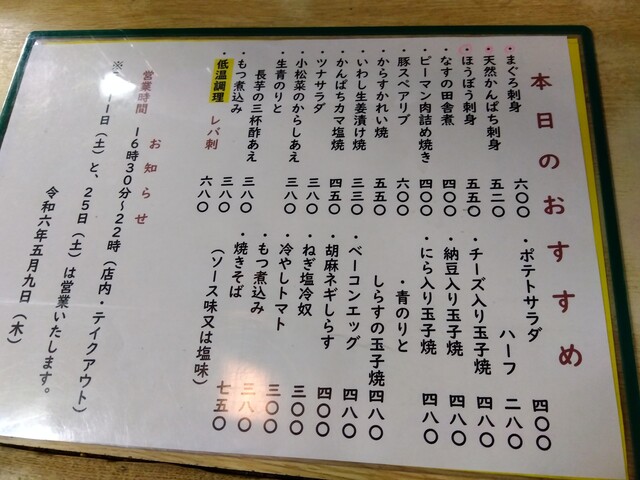 本日のおすすめ
・まぐろ刺身 六〇〇
・天然かんぱち刺身 五二〇
・ほうぼう刺身 五五〇
・なすの田舎煮 四〇〇
・ピーマン肉詰め焼き 四〇〇
・豚スペアリブ 六〇〇
・からすかれい焼 五五〇
・いわし生姜漬け焼 三三〇
・かんぱちカマ塩焼 四五〇
・ツナサラダ 三八〇
・小松菜のからしあえ 三八〇
・生青のりと
長芋の三杯酢あえ 三八〇
・もつ煮込み 三八〇
・低温調理 レバ刺 六八〇
・ポテトサラダ 四〇〇
ハーフ 二八〇
・チーズ入り玉子焼 四八〇
・納豆入り玉子焼 四八〇
・にら入り玉子焼 四八〇
・青のりと
しらすの玉子焼 四八〇
・ベーコンエッグ 四八〇
・胡麻ネギしらす 四〇〇
・ねぎ塩冷奴 三〇〇
・冷やしトマト 三〇〇
・もつ煮込み 三八〇
・焼きそば 七五〇
(ソース味又は塩味)
お知らせ
営業時間 16時30分~22時(店内・テイクアウト)
※ 1日(土)と、25日(土)は営業いたします。
令和六年五月九日(木)